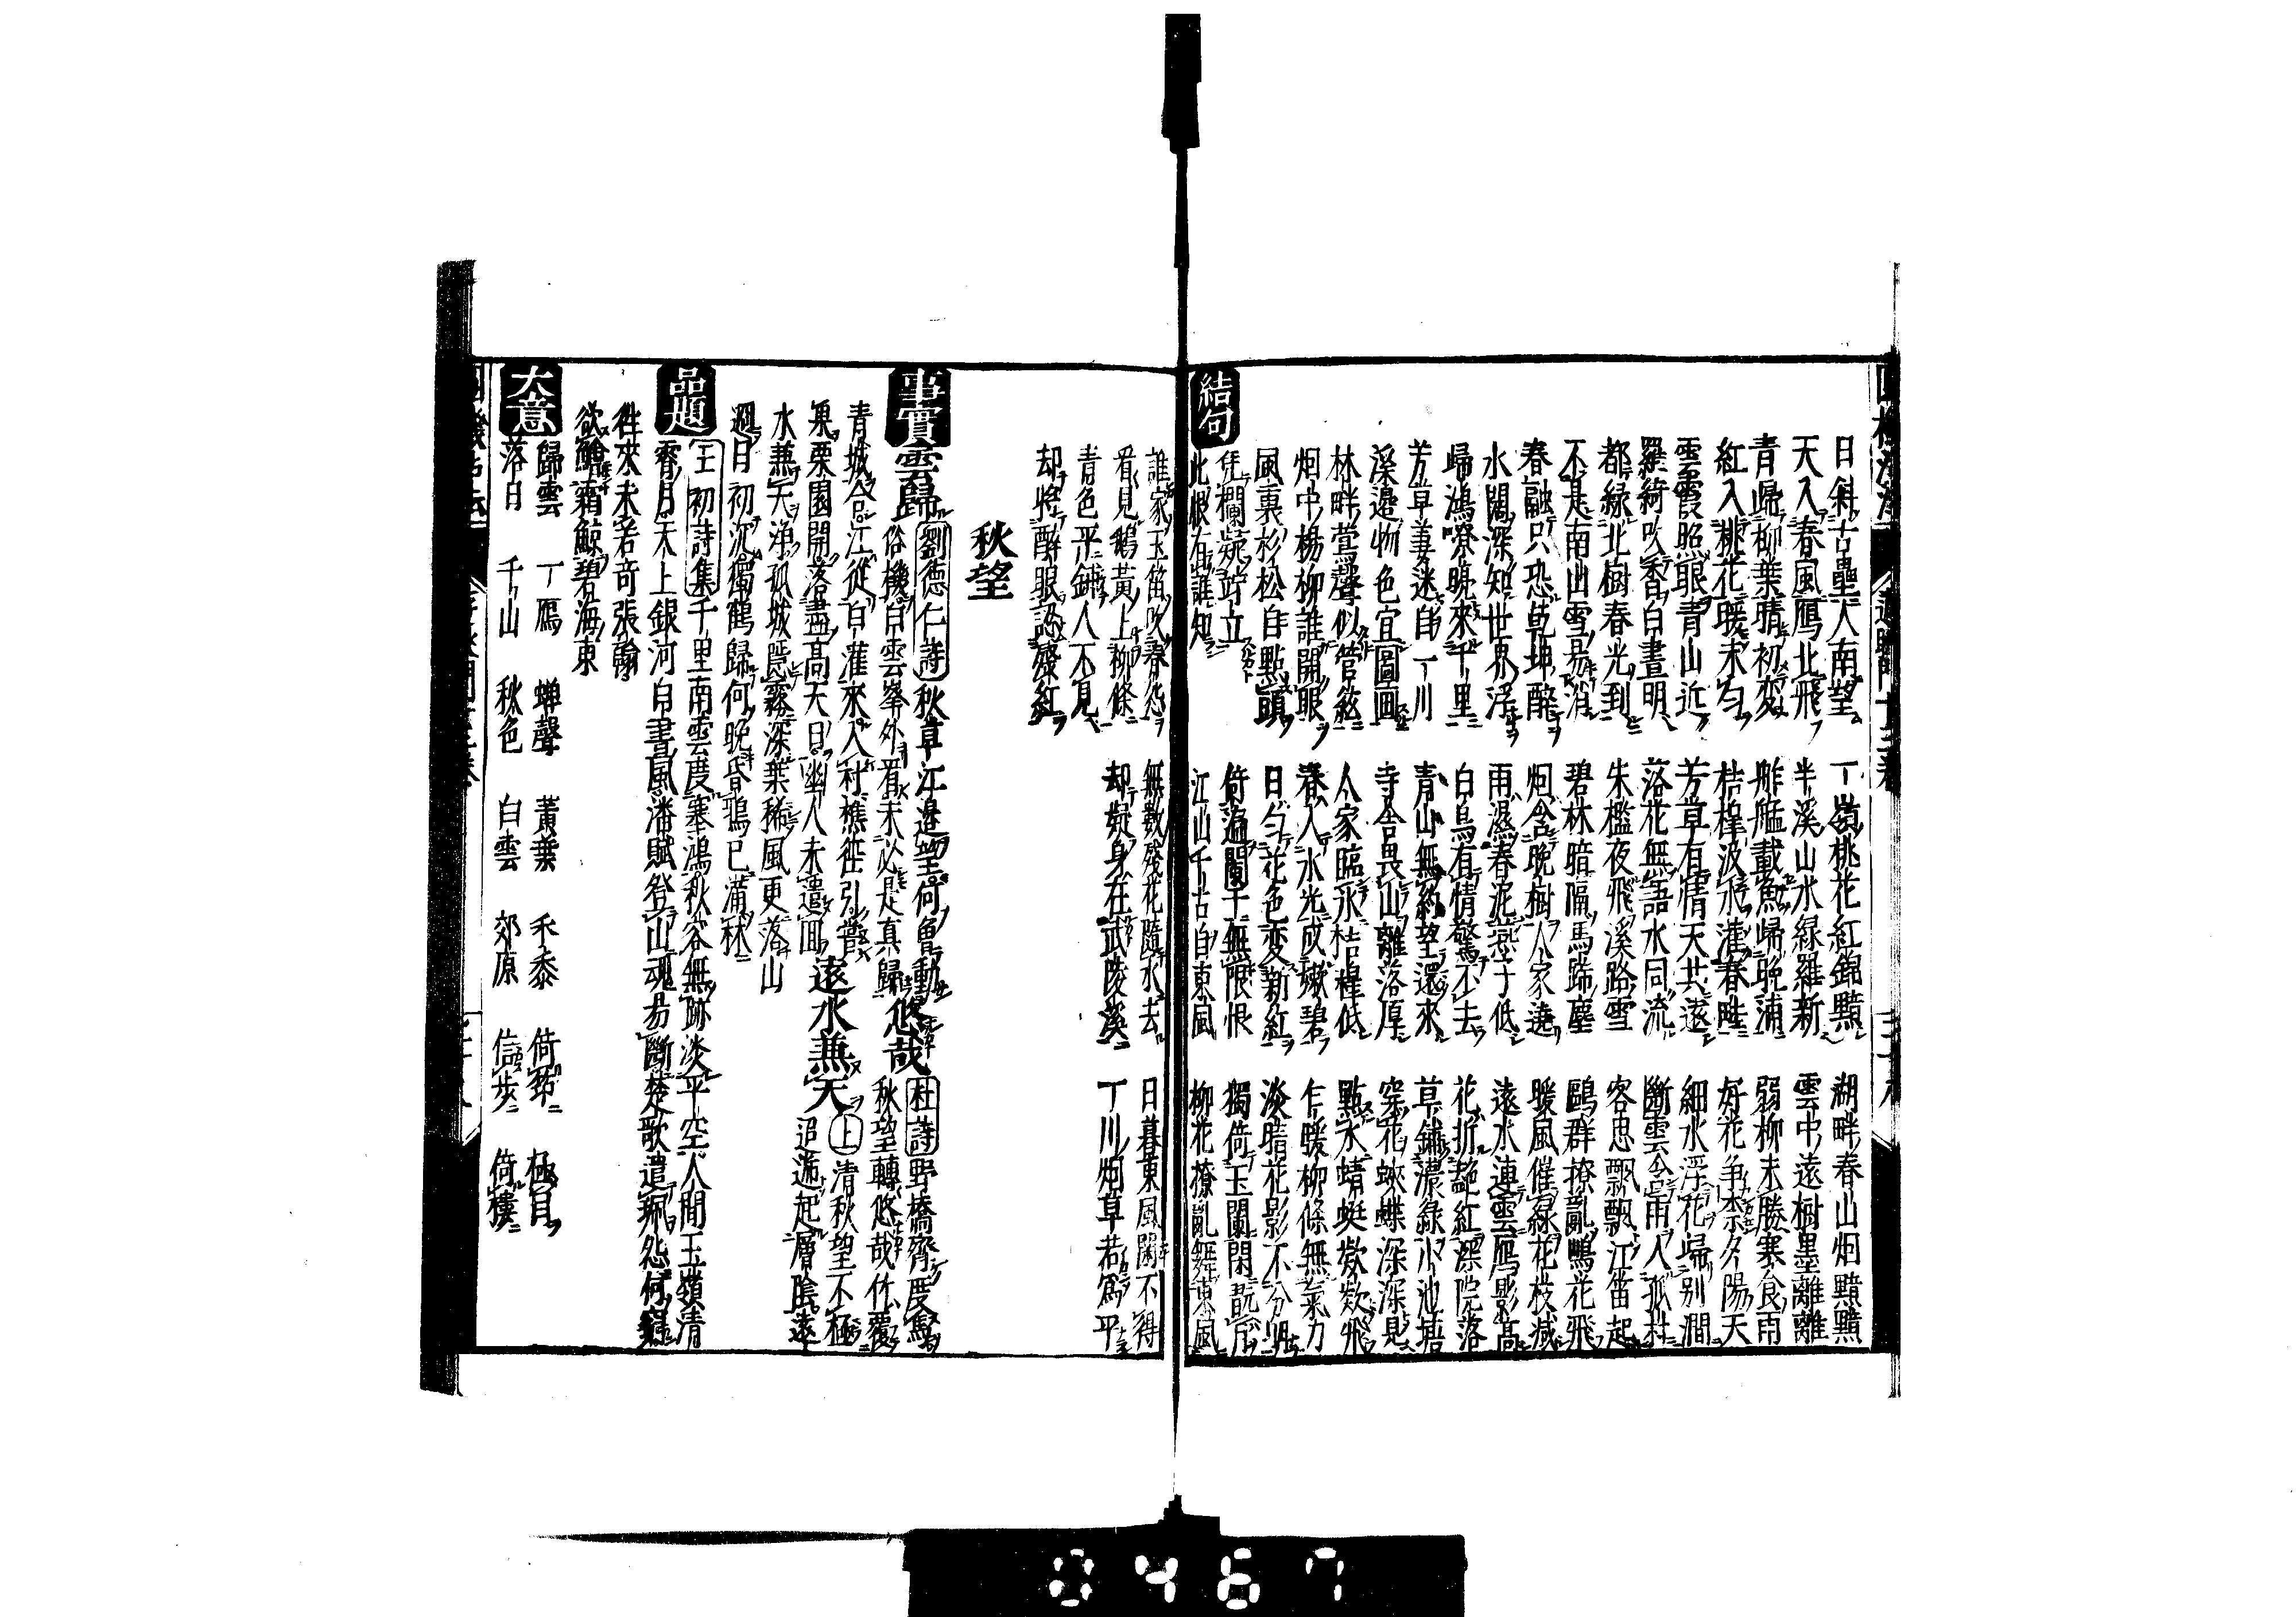 日斜古壘人南望 一嶺桃花紅錦黦 湖畔春山烟黯黯
天入春風鴈北飛 半溪山水綠羅新 雲中遠樹墨離離
青歸柳葉晴初変 舴艋載魚歸晚浦 弱柳未勝寒食雨
紅入桃花暖未勻 桔槹汲水灌春畦 好花爭奈夕陽天
雲霞照眼青山近 芳草有情天共遠 細水浮花歸別澗
羅綺吹香白晝明 落花無語水同流 斷雲含雨入孤村
都緑北樹春光到 朱檻夜飛溪路雪 客思飄飄江笛起
不是南山雪易消 碧林暗隔馬蹄塵 鷗群撩亂鴨花飛
春融只恐乾坤醉 烟含晚樹人家遠 暖風催綠花枝減
水闊深知世界浮 雨濕春泥燕子低 遠水連雲鴈影高
歸鴻嘹晚來千里 白鳥有情驚不去 花折艷紅深院落
芳草萋迷自一川 青山無約望還來 草鋪濃綠小池塘
溪邊物色宜圖画 寺含畏山離落厚 穿花蛺蝶深深見
林畔鶯聲似管絃 人家臨水桔槹低 點水蜻蜓欵欵飛
烟中楊柳誰開眼 春入水光成嫩碧 乍暖柳條無氣力
風裏杉松自點頭 日勻花色変新紅 淡晴花影不分明
結句
凭欄疑竚立 倚遍闌干無限恨 獨倚玉闌閑
此恨有誰知 江山千古自東風 柳花撩亂舞東風
誰家玉笛吹春怨 無數殘花隨水去 日暮東風闌不得
看見鵝黃上柳條 却疑身在武陵溪 一川烟草若爲平
青色平鋪人不見
却將醉眼認殘紅
秋望
事實 雲歸 劉德仁詩 秋草江邊望何魯動 悠哉 杜詩 野橋齊度馬
俗機白雲峯外看未必是真歸 秋望轉悠哉竹覆
青城合江從白灌來入村樵徑引嘗 遠水兼天 上 清秋望不極
果栗園開落盡高天日幽人未遣回 迢遞起層陰遠
水兼天淨孤城隱霧深葉稀風更落山
迥日初沉獨鶴歸何晚昏鴉已滿林
品題 王初詩集 千里南雲度塞鴻秋容無跡淡平空人間玉嶺清
霄月天上銀河白晝風潘賦登山魂易斷楚歌遣珮怨何窮
往來未若奇張翰
欲鱠霜鯨碧海東
大意 歸雲 一鴈 蟬聲 黃葉 禾黍 倚筇 極目
落日 千山 秋色 白雲 郊原 信步 倚樓
0467